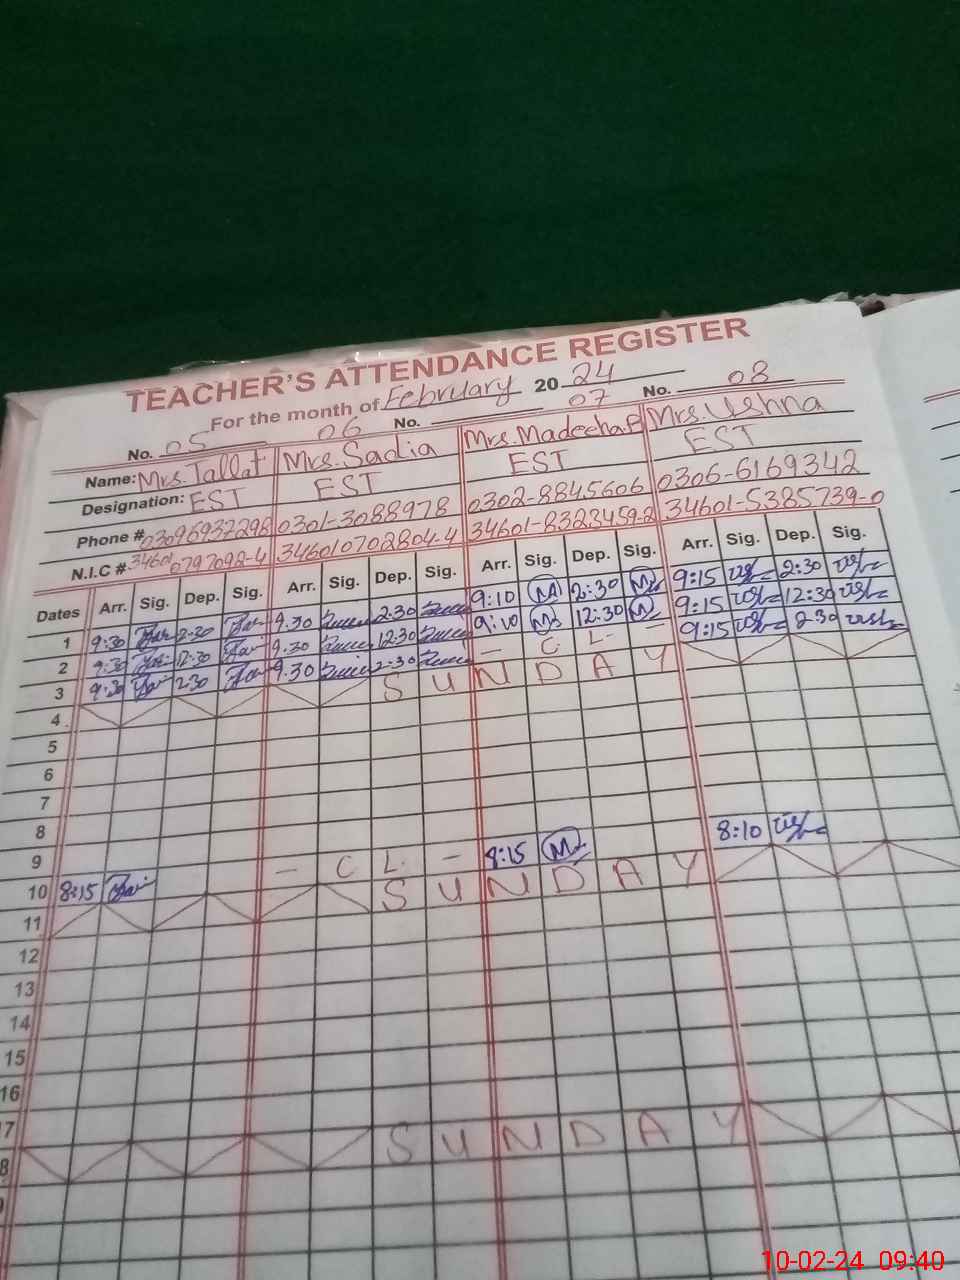 TEACHER'S ATTENDANCE REGISTER
For the month of February 2024
No. 05 06 No. 07 No. 08
Name: Mrs. Tallat Mrs. Sadia Mrs. Madeeha.B Mrs. Ushna
Designation: EST EST EST EST
Phone # 03096937298 0301-3088978 0302-8845606 0306-6169342
N.I.C # 34601 0797092-4 346010702804-4 34601-8323459-2 34601-5385739-0
Dates Arr. Sig. Dep. Sig. Arr. Sig. Dep. Sig. Arr. Sig. Dep. Sig. Arr. Sig. Dep. Sig.
1 9:30 2:30 9.30 2:30 9:10 2:30 9:15 2:30
2 9:30 12:30 9.30 12:30 9:10 12:30 9:15 12:30
3 9:30 2:30 9.30 2:30 - C L - 9:15 2:30
4 SUNDAY
5
6
7
8
9
10 8:15 - C L. - 8:15 8:10
11 SUNDAY
12
13
14
15
16
7
8 SUNDAY
9
10-02-24 09:40